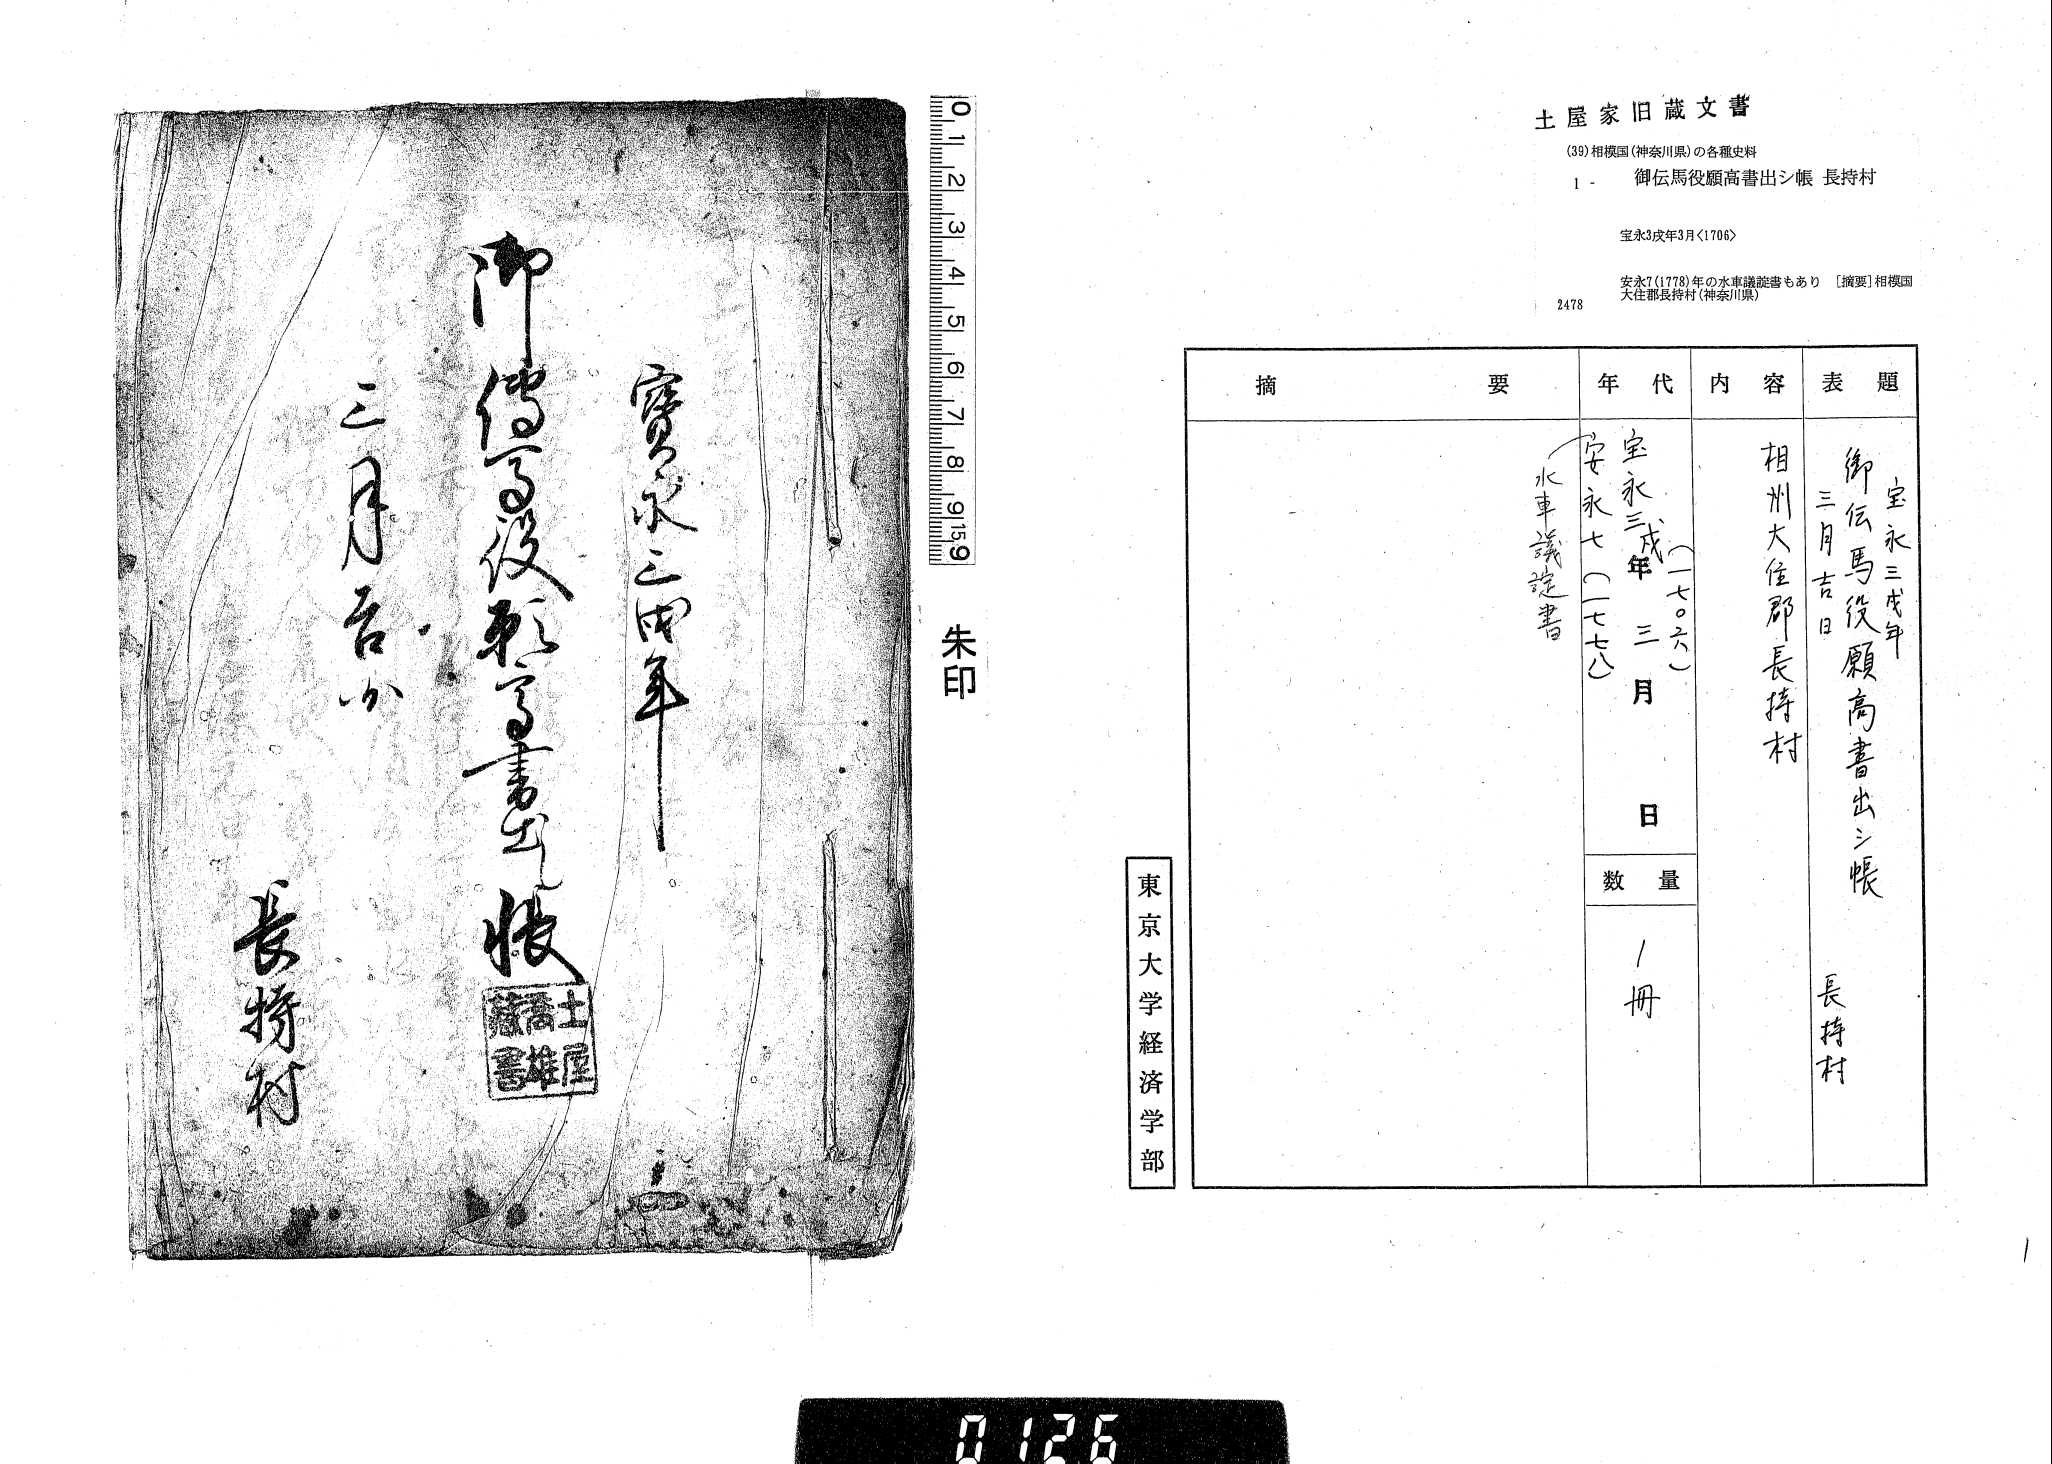 土屋家旧蔵文書
(39)相模国(神奈川県)の各種史料
1 - 御伝馬役願高書出シ帳 長持村
宝永3戌年3月<1706>
安永7(1778)年の水車議諚書もあり [摘要]相模国
大住郡長持村(神奈川県)
2478
表題
宝永三戌年
御伝馬役願高書出シ帳
三月吉日
長持村
内容
相州大住郡長持村
年代
(一七〇六)
宝永三戌年三月 日
安永七(一七七八)
水車議諚書
数量
1冊
摘要
東京大学経済学部
1
0 1 2 3 4 5 6 7 8 9 15 9
朱印
寳永三戌年
御傳馬役願高書出シ帳
三月吉日
長持村
土屋
喬雄
蔵書
0126